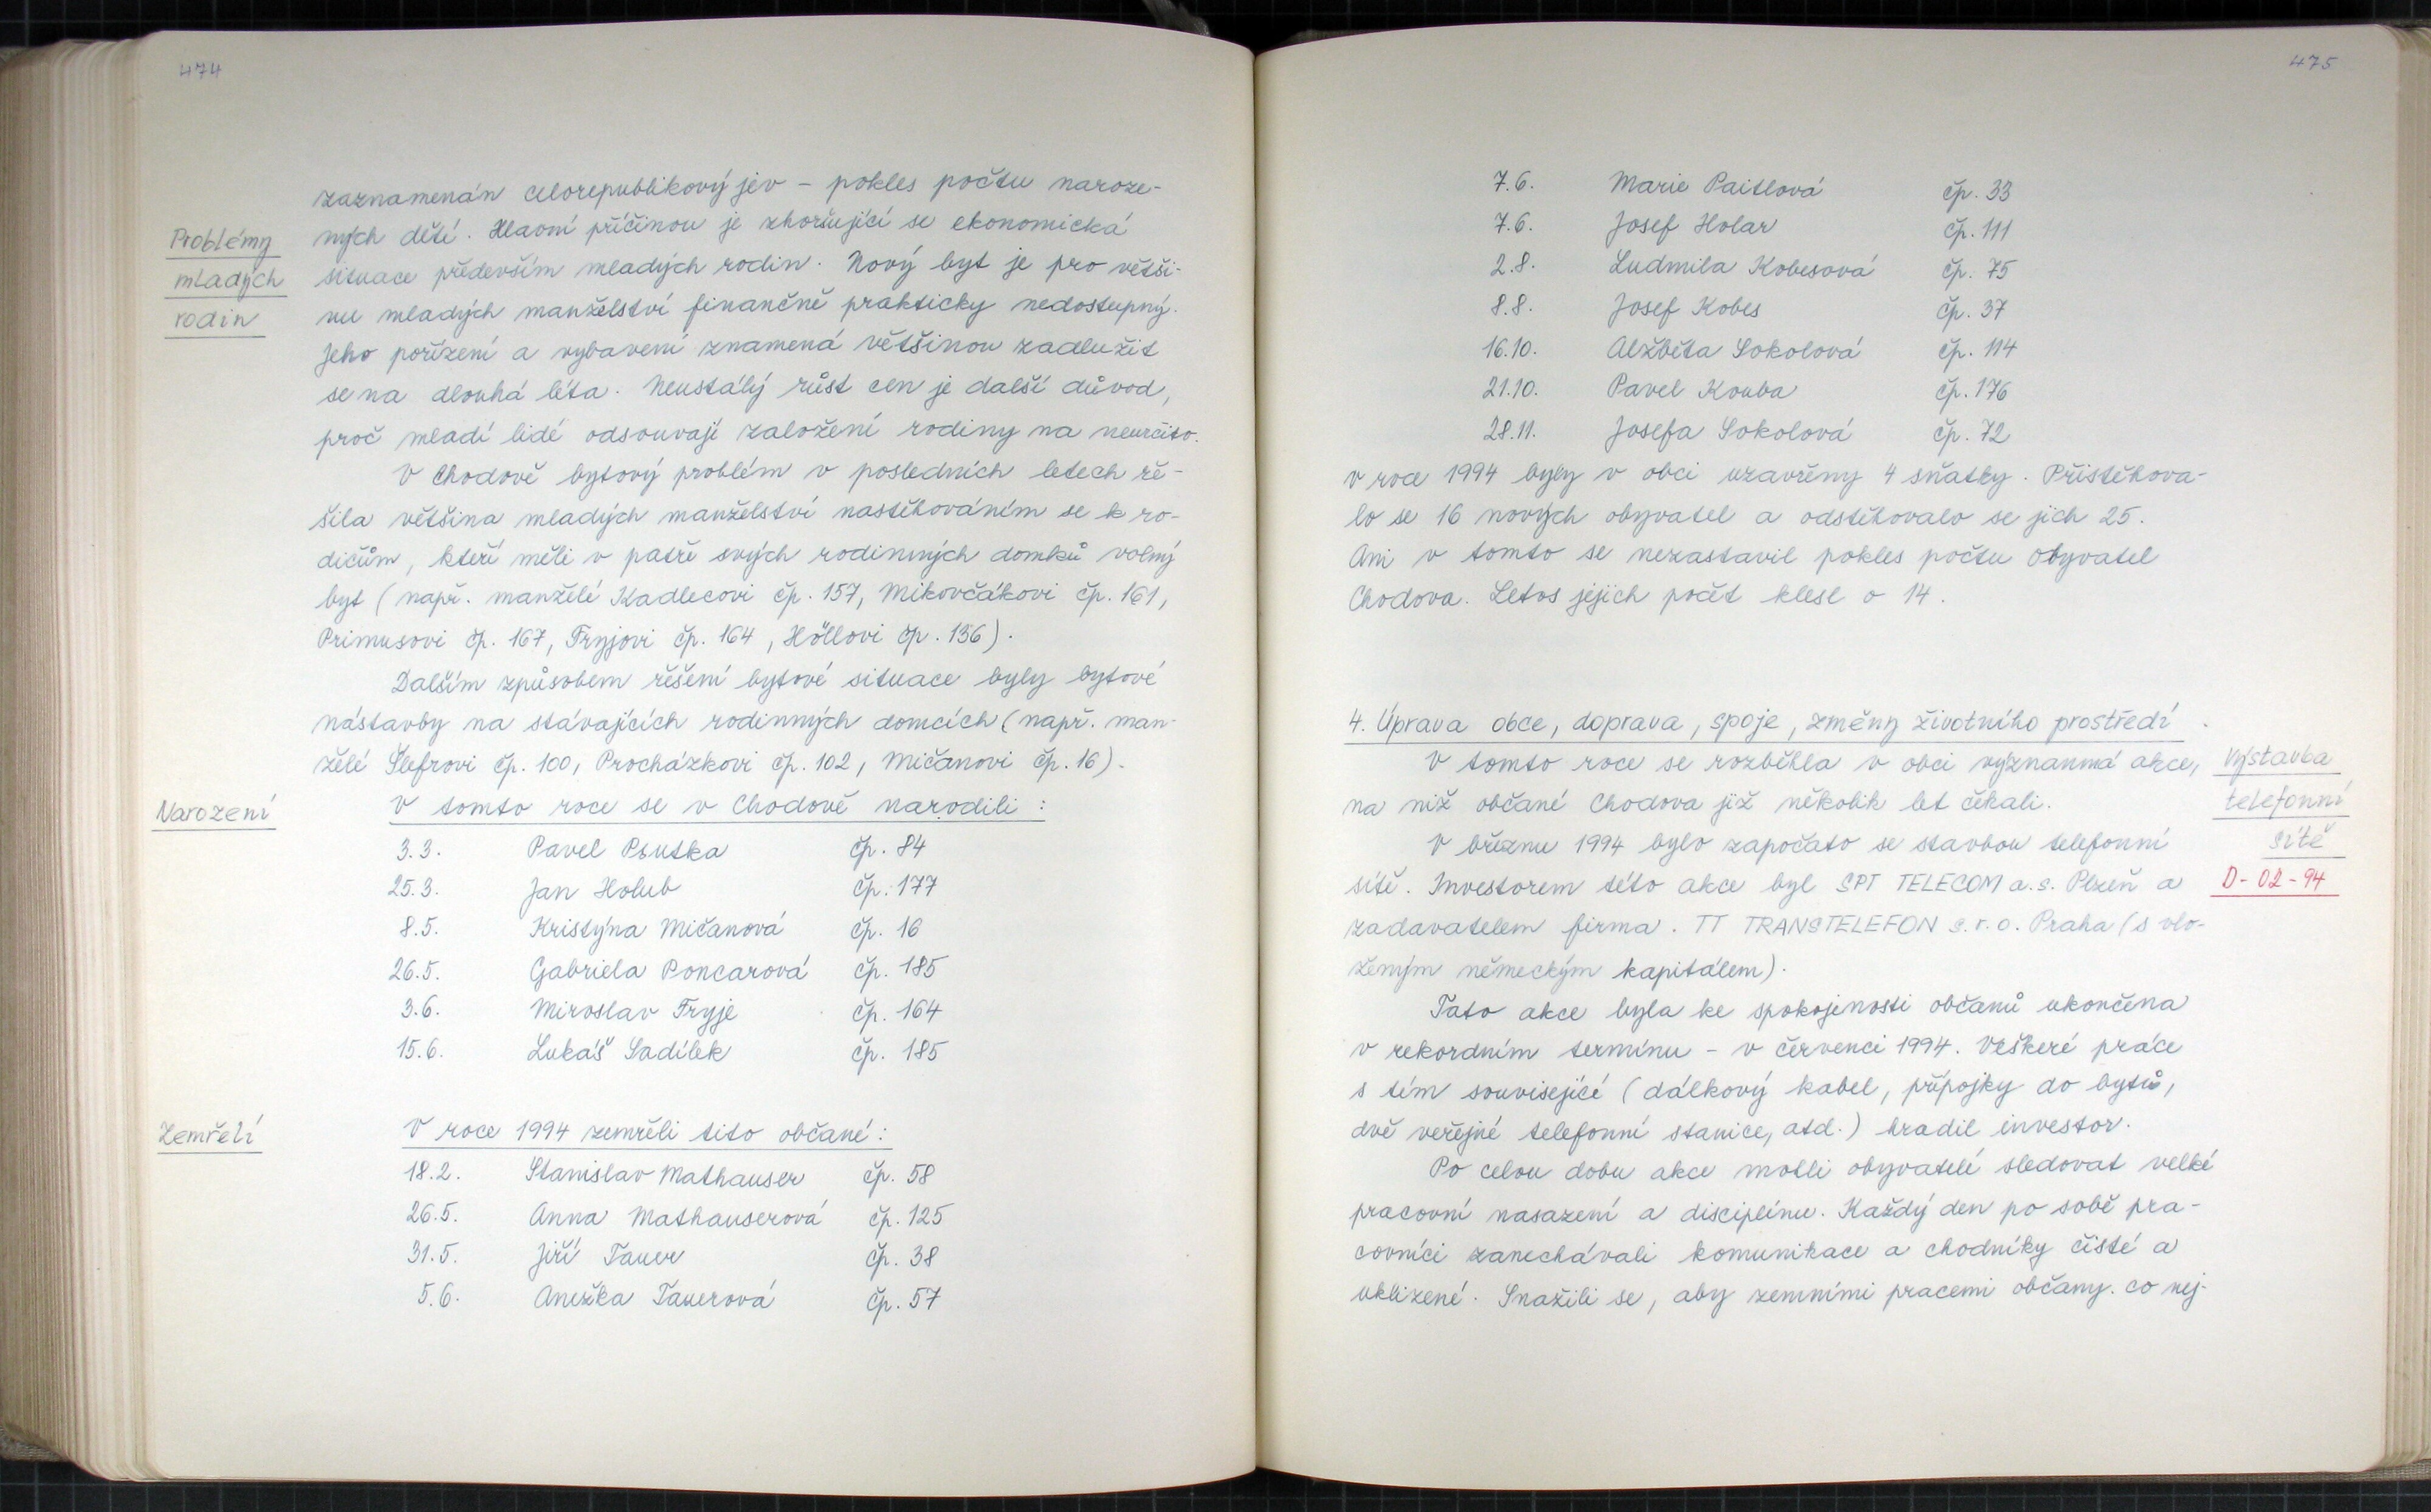 474
zaznamenán celorepublikový jev - pokles počtu naroze-
Problémy
ných dětí. Hlavní příčinou je zhoršující se ekonomická
mladých
situace především mladých rodin. Nový byt je pro větši-
rodin
nu mladých manželství finančně prakticky nedostupný.
Jeho pořízení a vybavení znamená většinou zadlužit
se na dlouhá léta. Neustálý růst cen je další důvod,
proč mladí lidé odsouvají založení rodiny na neurčito.
V Chodově bytový problém v posledních letech ře-
šila většina mladých manželství nastěhováním se k ro-
dičům, kteří měli v patře svých rodinných domků volný
byt (např. manželé Kadlecovi čp. 157, Mikovčákovi čp. 161,
Primusovi čp. 167, Fryjovi čp. 164, Höllovi čp. 136).
Dalším způsobem řešení bytové situace byly bytové
nástavby na stávajících rodinných domcích (např. man-
želé Šlefrovi čp. 100, Procházkovi čp. 102, Mičanovi čp. 16).
Narození
V tomto roce se v Chodově narodili:
3.3. Pavel Psutka čp. 84
25.3. Jan Holub čp. 177
8.5. Kristýna Mičanová čp. 16
26.5. Gabriela Poncarová čp. 185
3.6. Miroslav Fryje čp. 164
15.6. Lukáš Sadílek čp. 185
Zemřelí
V roce 1994 zemřeli tito občané:
18.2. Stanislav Mathauser čp. 58
26.5. Anna Mathauserová čp. 125
31.5. Jiří Tauer čp. 38
5.6. Anežka Tauerová čp. 57
475
7.6. Marie Paitlová čp. 33
7.6. Josef Holar čp. 111
2.8. Ludmila Kobesová čp. 75
8.8. Josef Kobes čp. 37
16.10. Alžběta Sokolová čp. 114
21.10. Pavel Kouba čp. 176
28.11. Josefa Sokolová čp. 72
v roce 1994 byly v obci uzavřeny 4 sňatky. Přistěhova-
lo se 16 nových obyvatel a odstěhovalo se jich 25.
Ani v tomto se nezastavil pokles počtu obyvatel
Chodova. Letos jejich počet klesl o 14.
4. Úprava obce, doprava, spoje, změny životního prostředí.
V tomto roce se rozběhla v obci významná akce,
Výstavba
na niž občané Chodova již několik let čekali.
telefonní
V březnu 1994 bylo započato se stavbou telefonní
sítě
sítě. Investorem této akce byl SPT TELECOM a.s. Plzeň a
D-02-94
zadavatelem firma. TT TRANSTELEFON s.r.o. Praha (s vlo-
ženým německým kapitálem).
Tato akce byla ke spokojenosti občanů ukončena
v rekordním termínu - v červenci 1994. Veškeré práce
s tím související (dálkový kabel, přípojky do bytů,
dvě veřejné telefonní stanice, atd.) hradil investor.
Po celou dobu akce mohli obyvatelé sledovat velké
pracovní nasazení a disciplínu. Každý den po sobě pra-
covníci zanechávali komunikace a chodníky čisté a
uklizené. Snažili se, aby zemními pracemi občany. co nej-